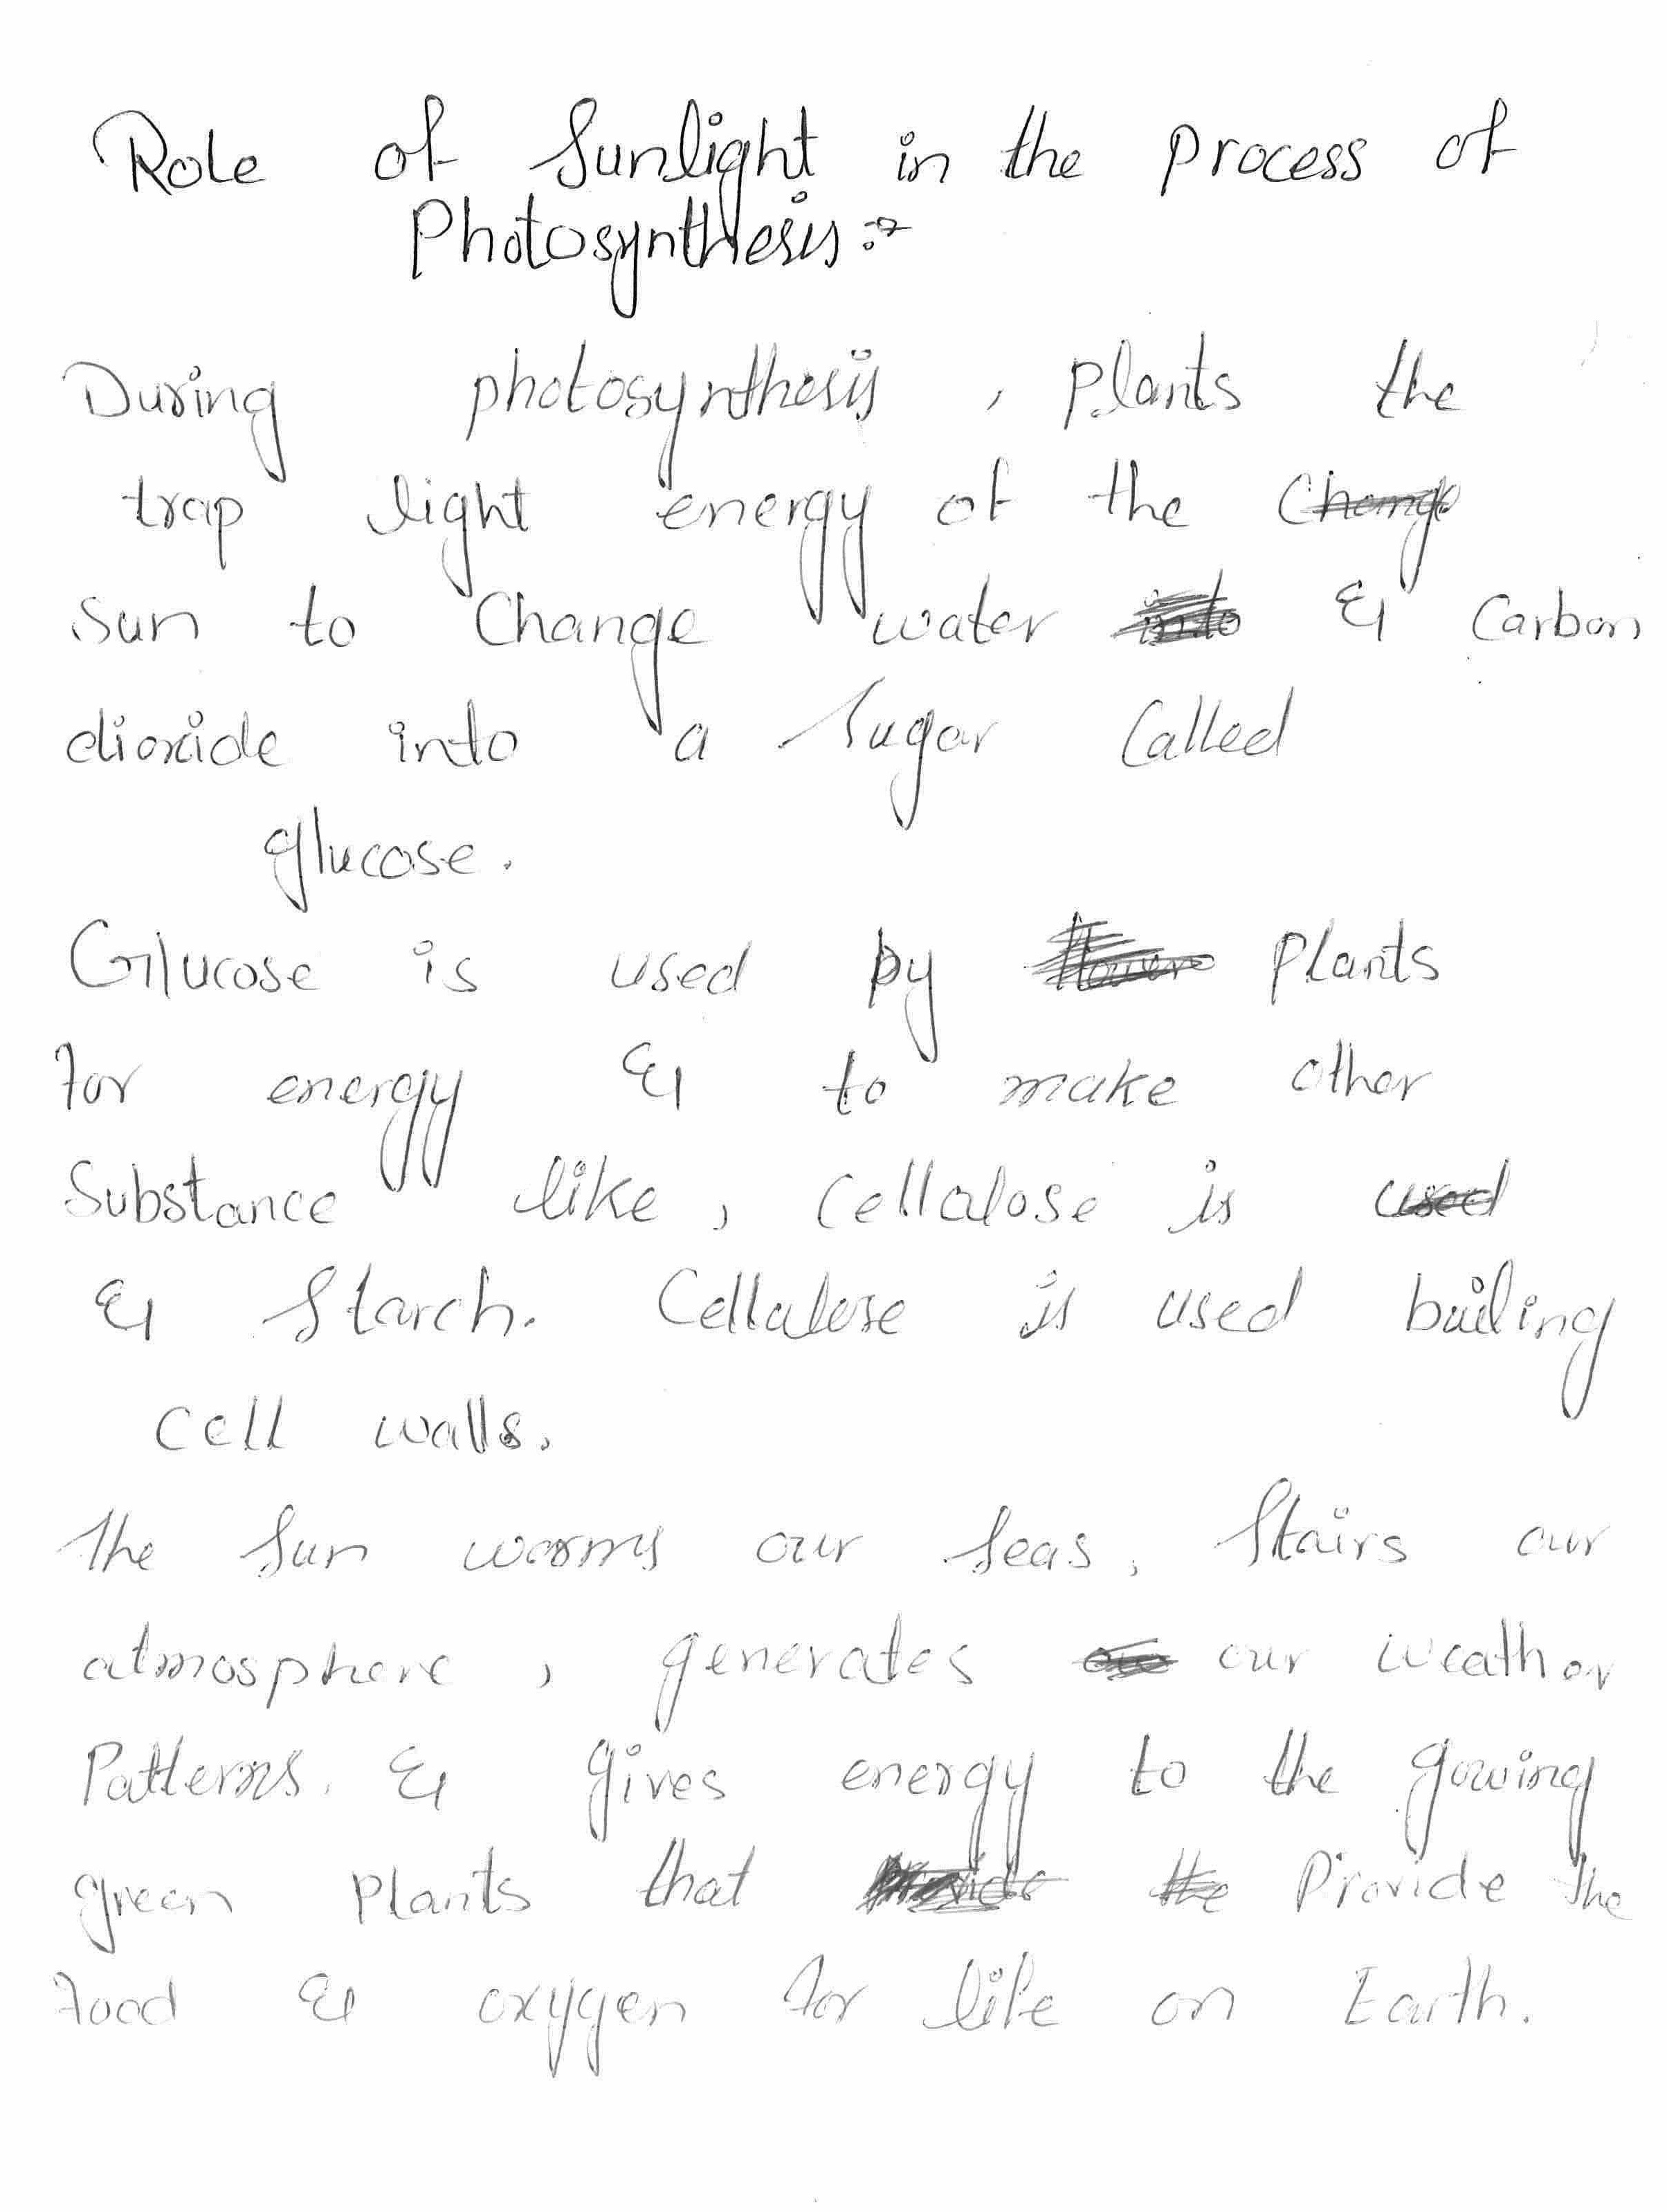 Role of Sunlight in the process of
Photosynthesis:→
During photosynthesis, plants the
trap light energy of the Change
sun to Change water into & Carbon
dioxide into a Sugar Called
glucose.
Glucose is used by plants
for energy & to make other
Substance like, Cellalose is used
& Starch. Cellalose is used builing
cell walls.
The Sun warms our Seas, Stairs our
atmosphere, generates our weather
Patterns. & gives energy to the gowing
green plants that provide the Provide the
food & oxygen for life on Earth.